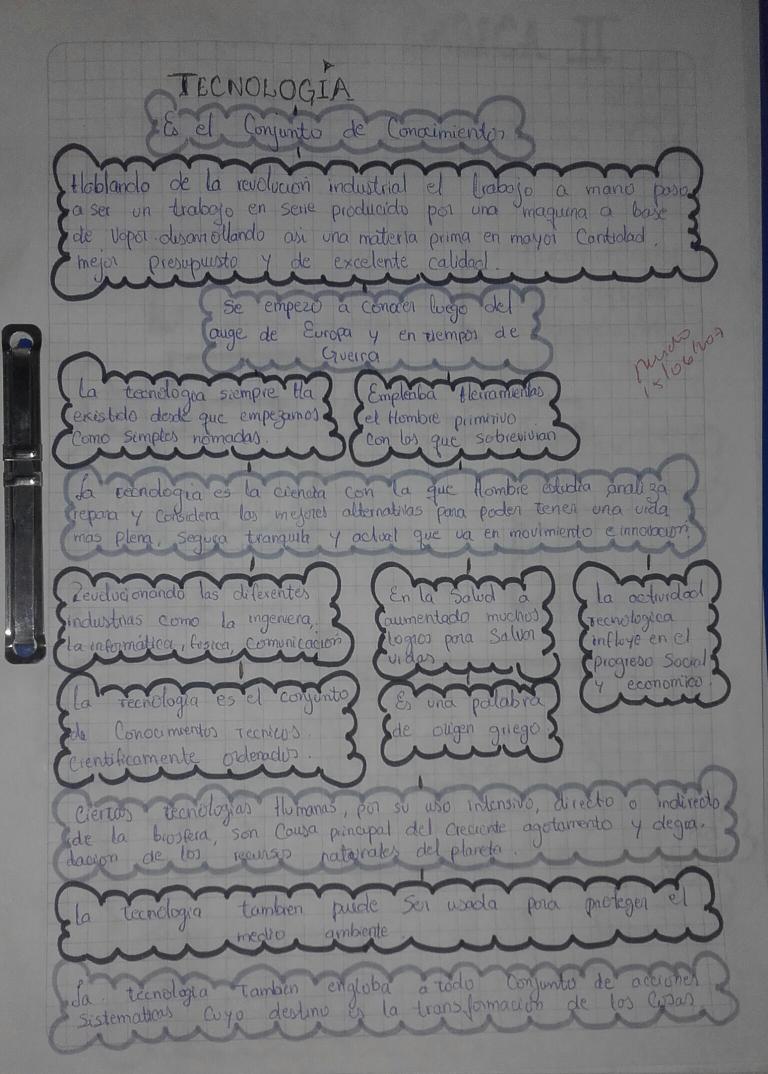 TECNOLOGÍA
Es el Conjunto de Conocimientos
Hablando de la revolución industrial el trabajo a mano paso
a ser un trabajo en serie producido por una maquina a base
de vapor desarrollando asi una materia prima en mayor Cantidad,
mejor presupuesto y de excelente calidad.
Se empezo a conocer luego del
auge de Europa y en tiempos de
Guerra
La tecnologia siempre Ha
existido desde que empezamos
como simples nomadas.
Empleaba Herramientas
el Hombre primitivo
con los que sobrevivian
La tecnologia es la ciencia con la que Hombre estudia analiza
repara y considera las mejores alternativas para poder tener una vida
mas plena, segura tranquila y actual que va en movimiento e innovacion.
Revolucionando las diferentes
industrias como la ingeniera,
la informática, fisica, comunicación
En la Salud a
aumentado muchos
logros para Salvar
vidas
La actividad
tecnologica
influye en el
progreso Social
y economico.
La tecnologia es el conjunto
de Conocimientos tecnicos.
Cientificamente ordenados.
Es una palabra
de origen griego
Ciertas tecnologias Humanas, por su uso intensivo, directo o indirecto
de la biosfera, son Causa principal del creciente agotamiento y degra.
dacion de los recursos naturales del planeta.
La tecnologia tambien puede Ser usada para proteger el
medio ambiente
La tecnologia Tambien engloba a todo Conjunto de acciones
sistematicas Cuyo destino es la transformación de los Cosas.